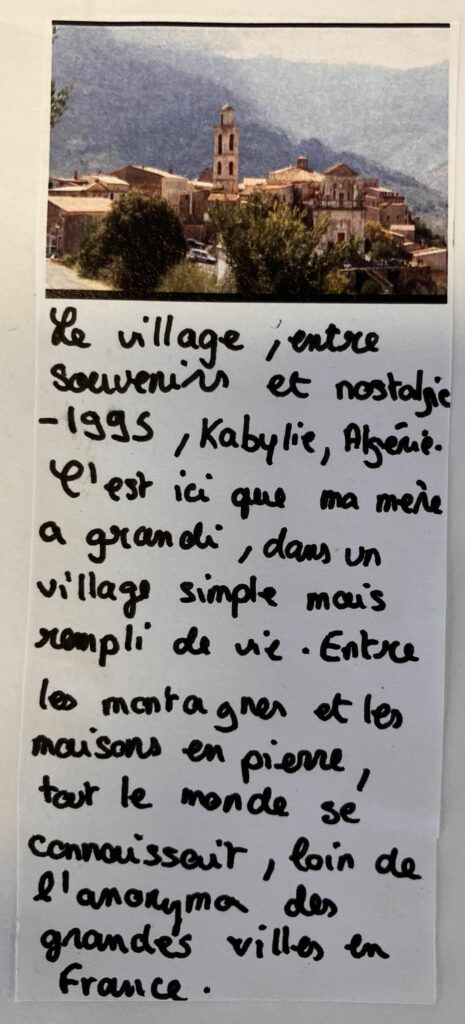 Le village, entre
souvenirs et nostalgie
-1995, Kabylie, Algérie.
C'est ici que ma mère
a grandi, dans un
village simple mais
rempli de vie. Entre
les montagnes et les
maisons en pierre,
tout le monde se
connaissait, loin de
l'anonyma des
grandes villes en
France.